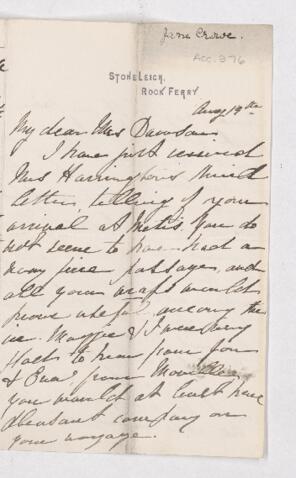 Jane Crowe.
ACC. 976
STONELEIGH,
ROCK FERRY
Aug 19th
My dear Mrs Dawson
I have just received
Mrs Harrington's kind
letter telling of your
arrival at Metis. You do
not seem to have had a
very fine passage, and
all your wraps would
prove useful among the
ice. Maggie & I were very
glad to hear from you
& Eva from
you would at least have
pleasant company on
your voyage.